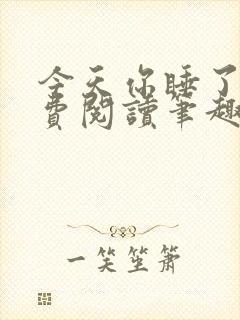 今天你睡了
費閱讀筆趣
一笑坐蕭